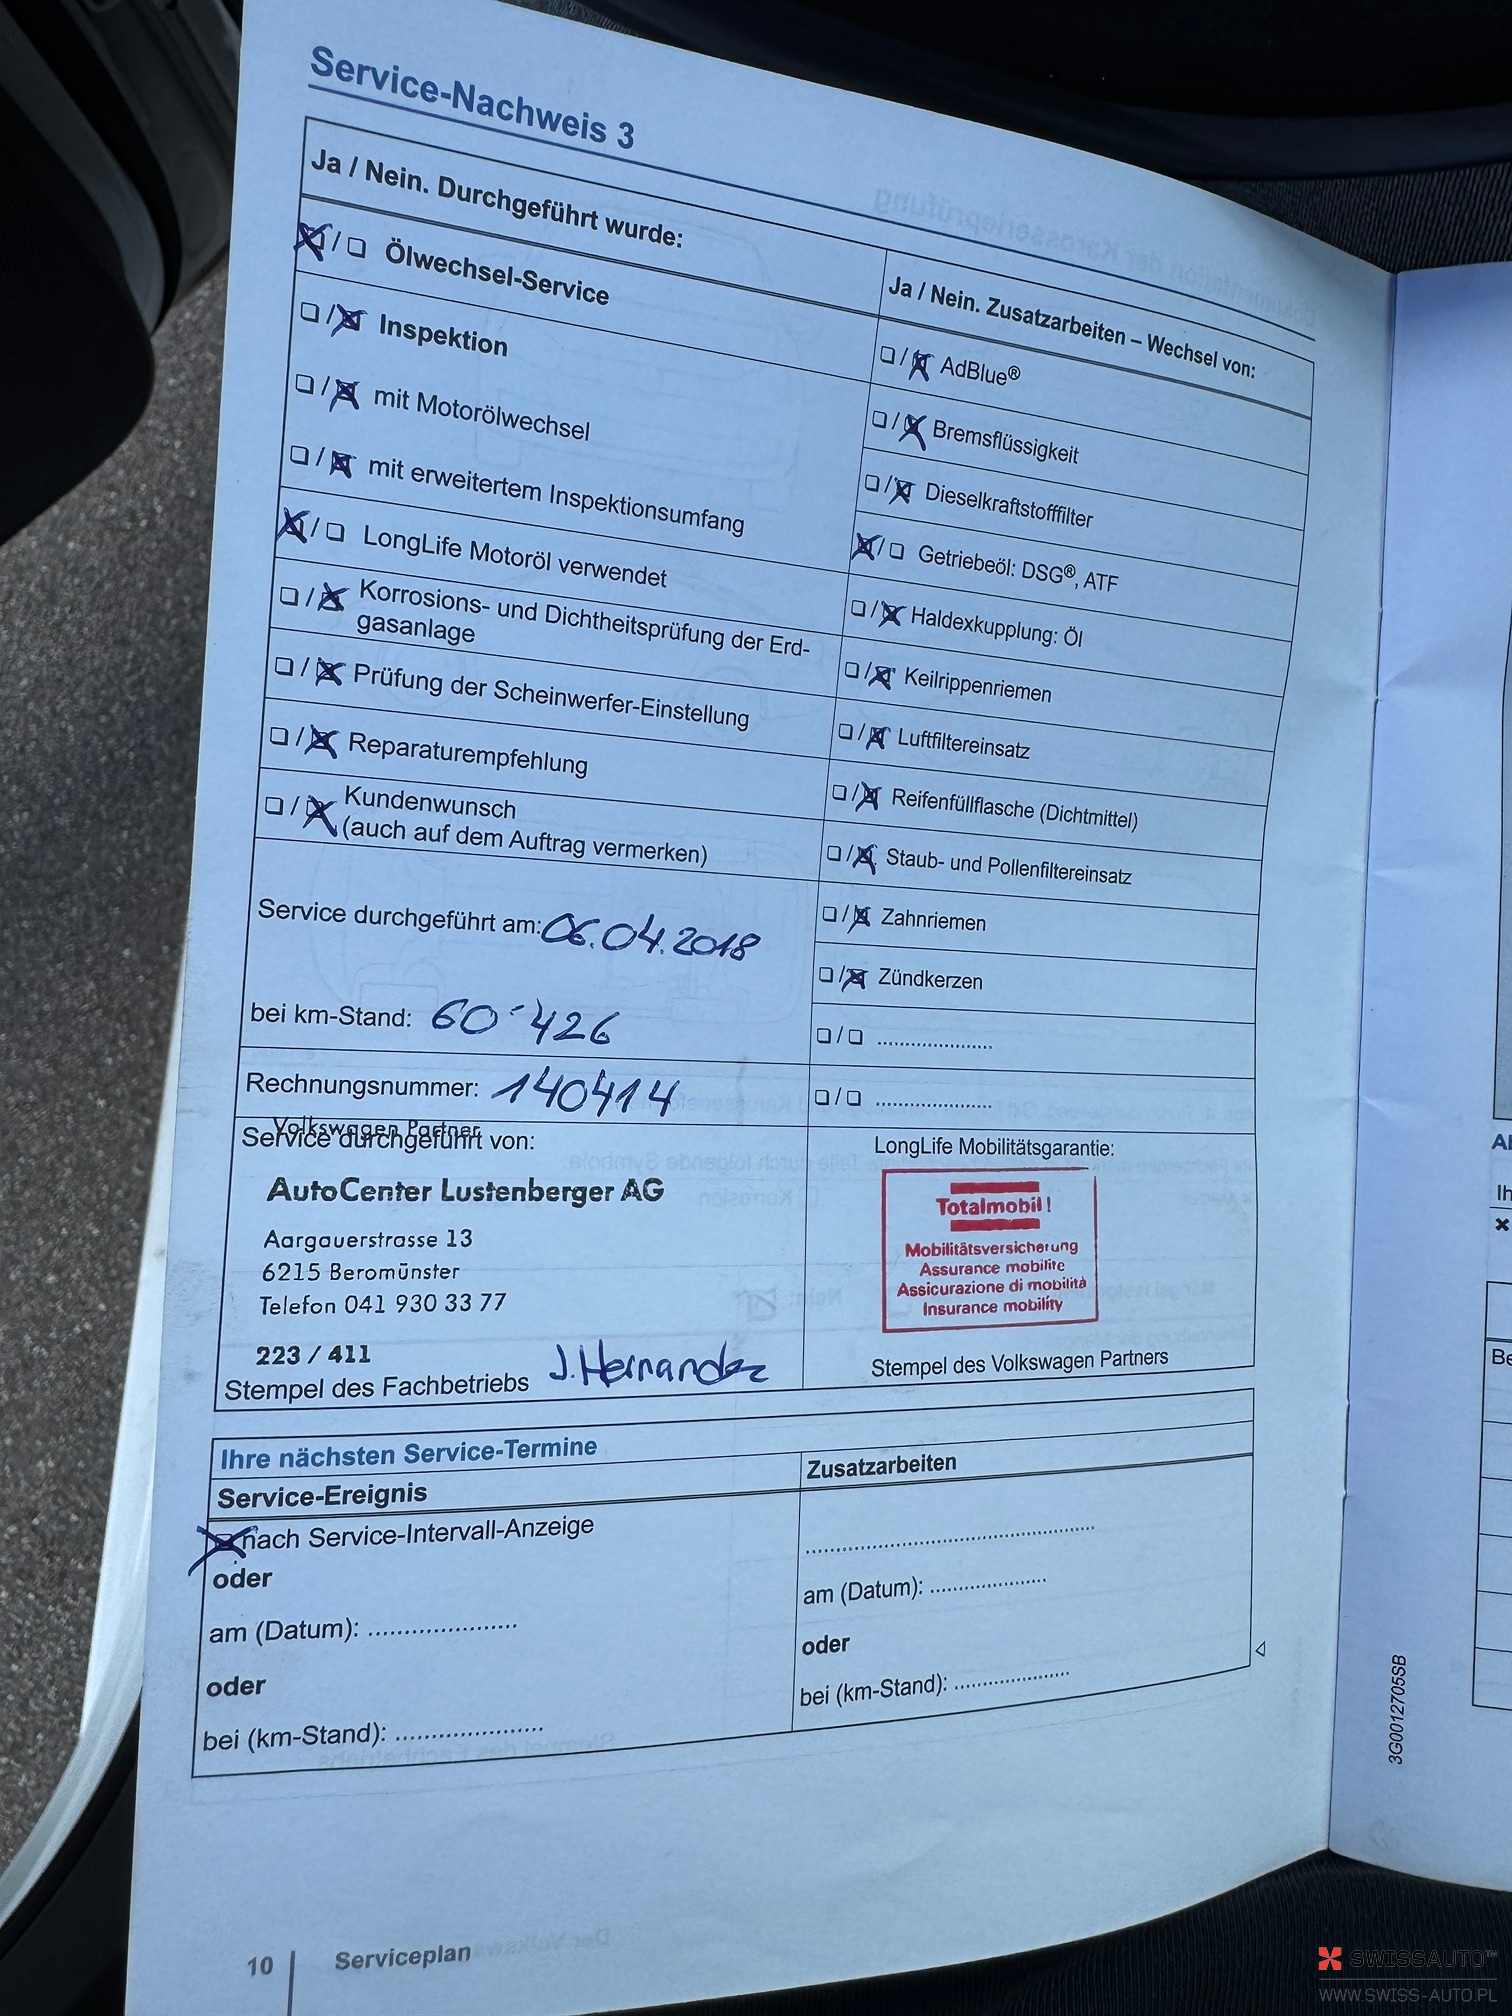 Service-Nachweis 3
Ja / Nein. Durchgeführt wurde:
Ölwechsel-Service
Inspektion
mit Motorölwechsel
mit erweitertem Inspektionsumfang
LongLife Motoröl verwendet
Korrosions- und Dichtheitsprüfung der Erd-
gasanlage
Prüfung der Scheinwerfer-Einstellung
Reparaturempfehlung
Kundenwunsch
(auch auf dem Auftrag vermerken)
Service durchgeführt am: 06.04.2018
bei km-Stand: 60'426
Rechnungsnummer: 140414
Ja / Nein. Zusatzarbeiten – Wechsel von:
AdBlue®
Bremsflüssigkeit
Dieselkraftstofffilter
Getriebeöl: DSG®, ATF
Haldexkupplung: Öl
Keilrippenriemen
Luftfiltereinsatz
Reifenfüllflasche (Dichtmittel)
Staub- und Pollenfiltereinsatz
Zahnriemen
Zündkerzen
Volkswagen Partner
Service durchgeführt von:
AutoCenter Lustenberger AG
Aargauerstrasse 13
6215 Beromünster
Telefon 041 930 33 77
223 / 411
Stempel des Fachbetriebs J. Hernandez
LongLife Mobilitätsgarantie:
Totalmobil!
Mobilitätsversicherung
Assurance mobilite
Assicurazione di mobilità
Insurance mobility
Stempel des Volkswagen Partners
Ihre nächsten Service-Termine
Service-Ereignis
nach Service-Intervall-Anzeige
oder
am (Datum): ......................
oder
bei (km-Stand): ......................
Zusatzarbeiten
am (Datum): ......................
oder
bei (km-Stand): ......................
10 Serviceplan
3G0012705SB
SWISSAUTO™
WWW.SWISS-AUTO.PL